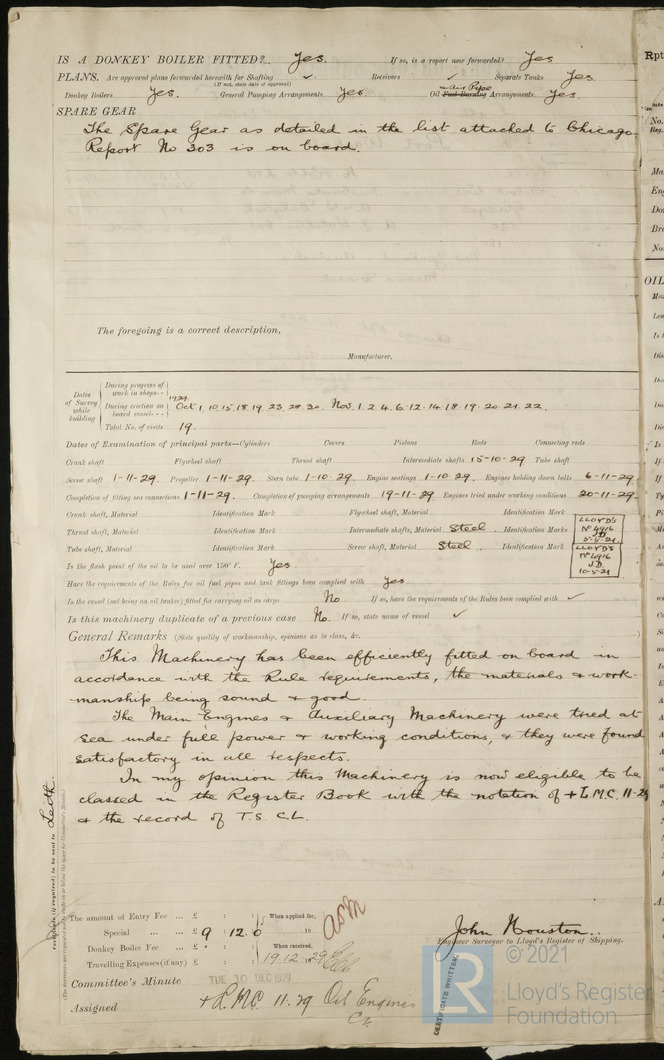 IS A DONKEY BOILER FITTED? Yes. If so, is a report now forwarded? Yes
PLANS. Are approved plans forwarded herewith for Shafting ✓ Receivers ✓ Separate Tanks Yes
(If not, state date of approval)
Donkey Boilers Yes. General Pumping Arrangements Yes. Oil Fuel Burning Arrangements Yes.
SPARE GEAR
The Spare Gear as detailed in the list attached to Chicago
Report No 303 is on board.
The foregoing is a correct description,
Manufacturer.
Dates of Survey while building
During progress of work in shops - -
1929.
During erection on board vessel - - Oct 1, 10, 15, 18, 19, 23, 28, 30, Nov. 1. 2. 4. 6. 12. 14. 18. 19. 20. 21. 22.
Total No. of visits 19.
Dates of Examination of principal parts—Cylinders Covers Pistons Rods Connecting rods
Crank shaft Flywheel shaft Thrust shaft Intermediate shafts 15-10-29 Tube shaft
Screw shaft 1-11-29. Propeller 1-11-29. Stern tube 1-10-29. Engine seatings 1-10-29. Engines holding down bolts 6-11-29.
Completion of fitting sea connections 1-11-29. Completion of pumping arrangements 19-11-29. Engines tried under working conditions 20-11-29.
Crank shaft, Material Identification Mark Flywheel shaft, Material Identification Mark
Thrust shaft, Material Identification Mark Intermediate shafts, Material Steel. Identification Marks
LLOYD'S
No 4916
J.D
Tube shaft, Material Identification Mark Screw shaft, Material Steel. Identification Mark
LLOYD'S
No 4916
J.D
Is the flash point of the oil to be used over 150° F. Yes.
Have the requirements of the Rules for oil fuel pipes and tank fittings been complied with Yes.
Is the vessel (not being an oil tanker) fitted for carrying oil as cargo No. If so, have the requirements of the Rules been complied with ✓
Is this machinery duplicate of a previous case No. If so, state name of vessel ✓
General Remarks (State quality of workmanship, opinions as to class, &c.
This Machinery has been efficiently fitted on board in
accordance with the Rule requirements, the materials & work-
manship being sound & good.
The Main Engines & Auxiliary Machinery were tried at
sea under full power & working conditions, & they were found
satisfactory in all respects.
In my opinion this Machinery is now eligible to be
classed in the Register Book with the notation of + L.M.C. 11-29
& the record of T.S. C.L.
Certificate (if required) to be sent to Leith.
The amount of Entry Fee ... £ : : When applied for,
Special ... ... £ 9 : 12 : 0 19
Donkey Boiler Fee ... £ : : When received,
Travelling Expenses (if any) £ : : 19.12.29
John Houston.
Engineer Surveyor to Lloyd's Register of Shipping.
Committee's Minute TUE 10 DEC 1929
Assigned + LMC 11.29 Oil Engines
CL
CERTIFICATE WRITTEN.
© 2021
Lloyd's Register
Foundation